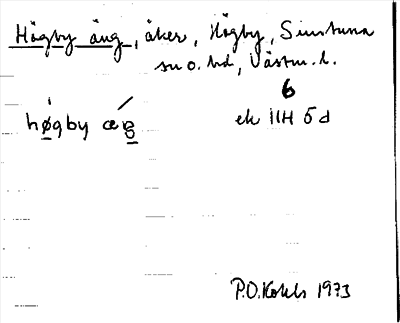 Högby äng, åker, Högby, Simtuna
sn o. hd, Västm. l.
6
høgby æŋ ek 11H 5d
P.O. 1973